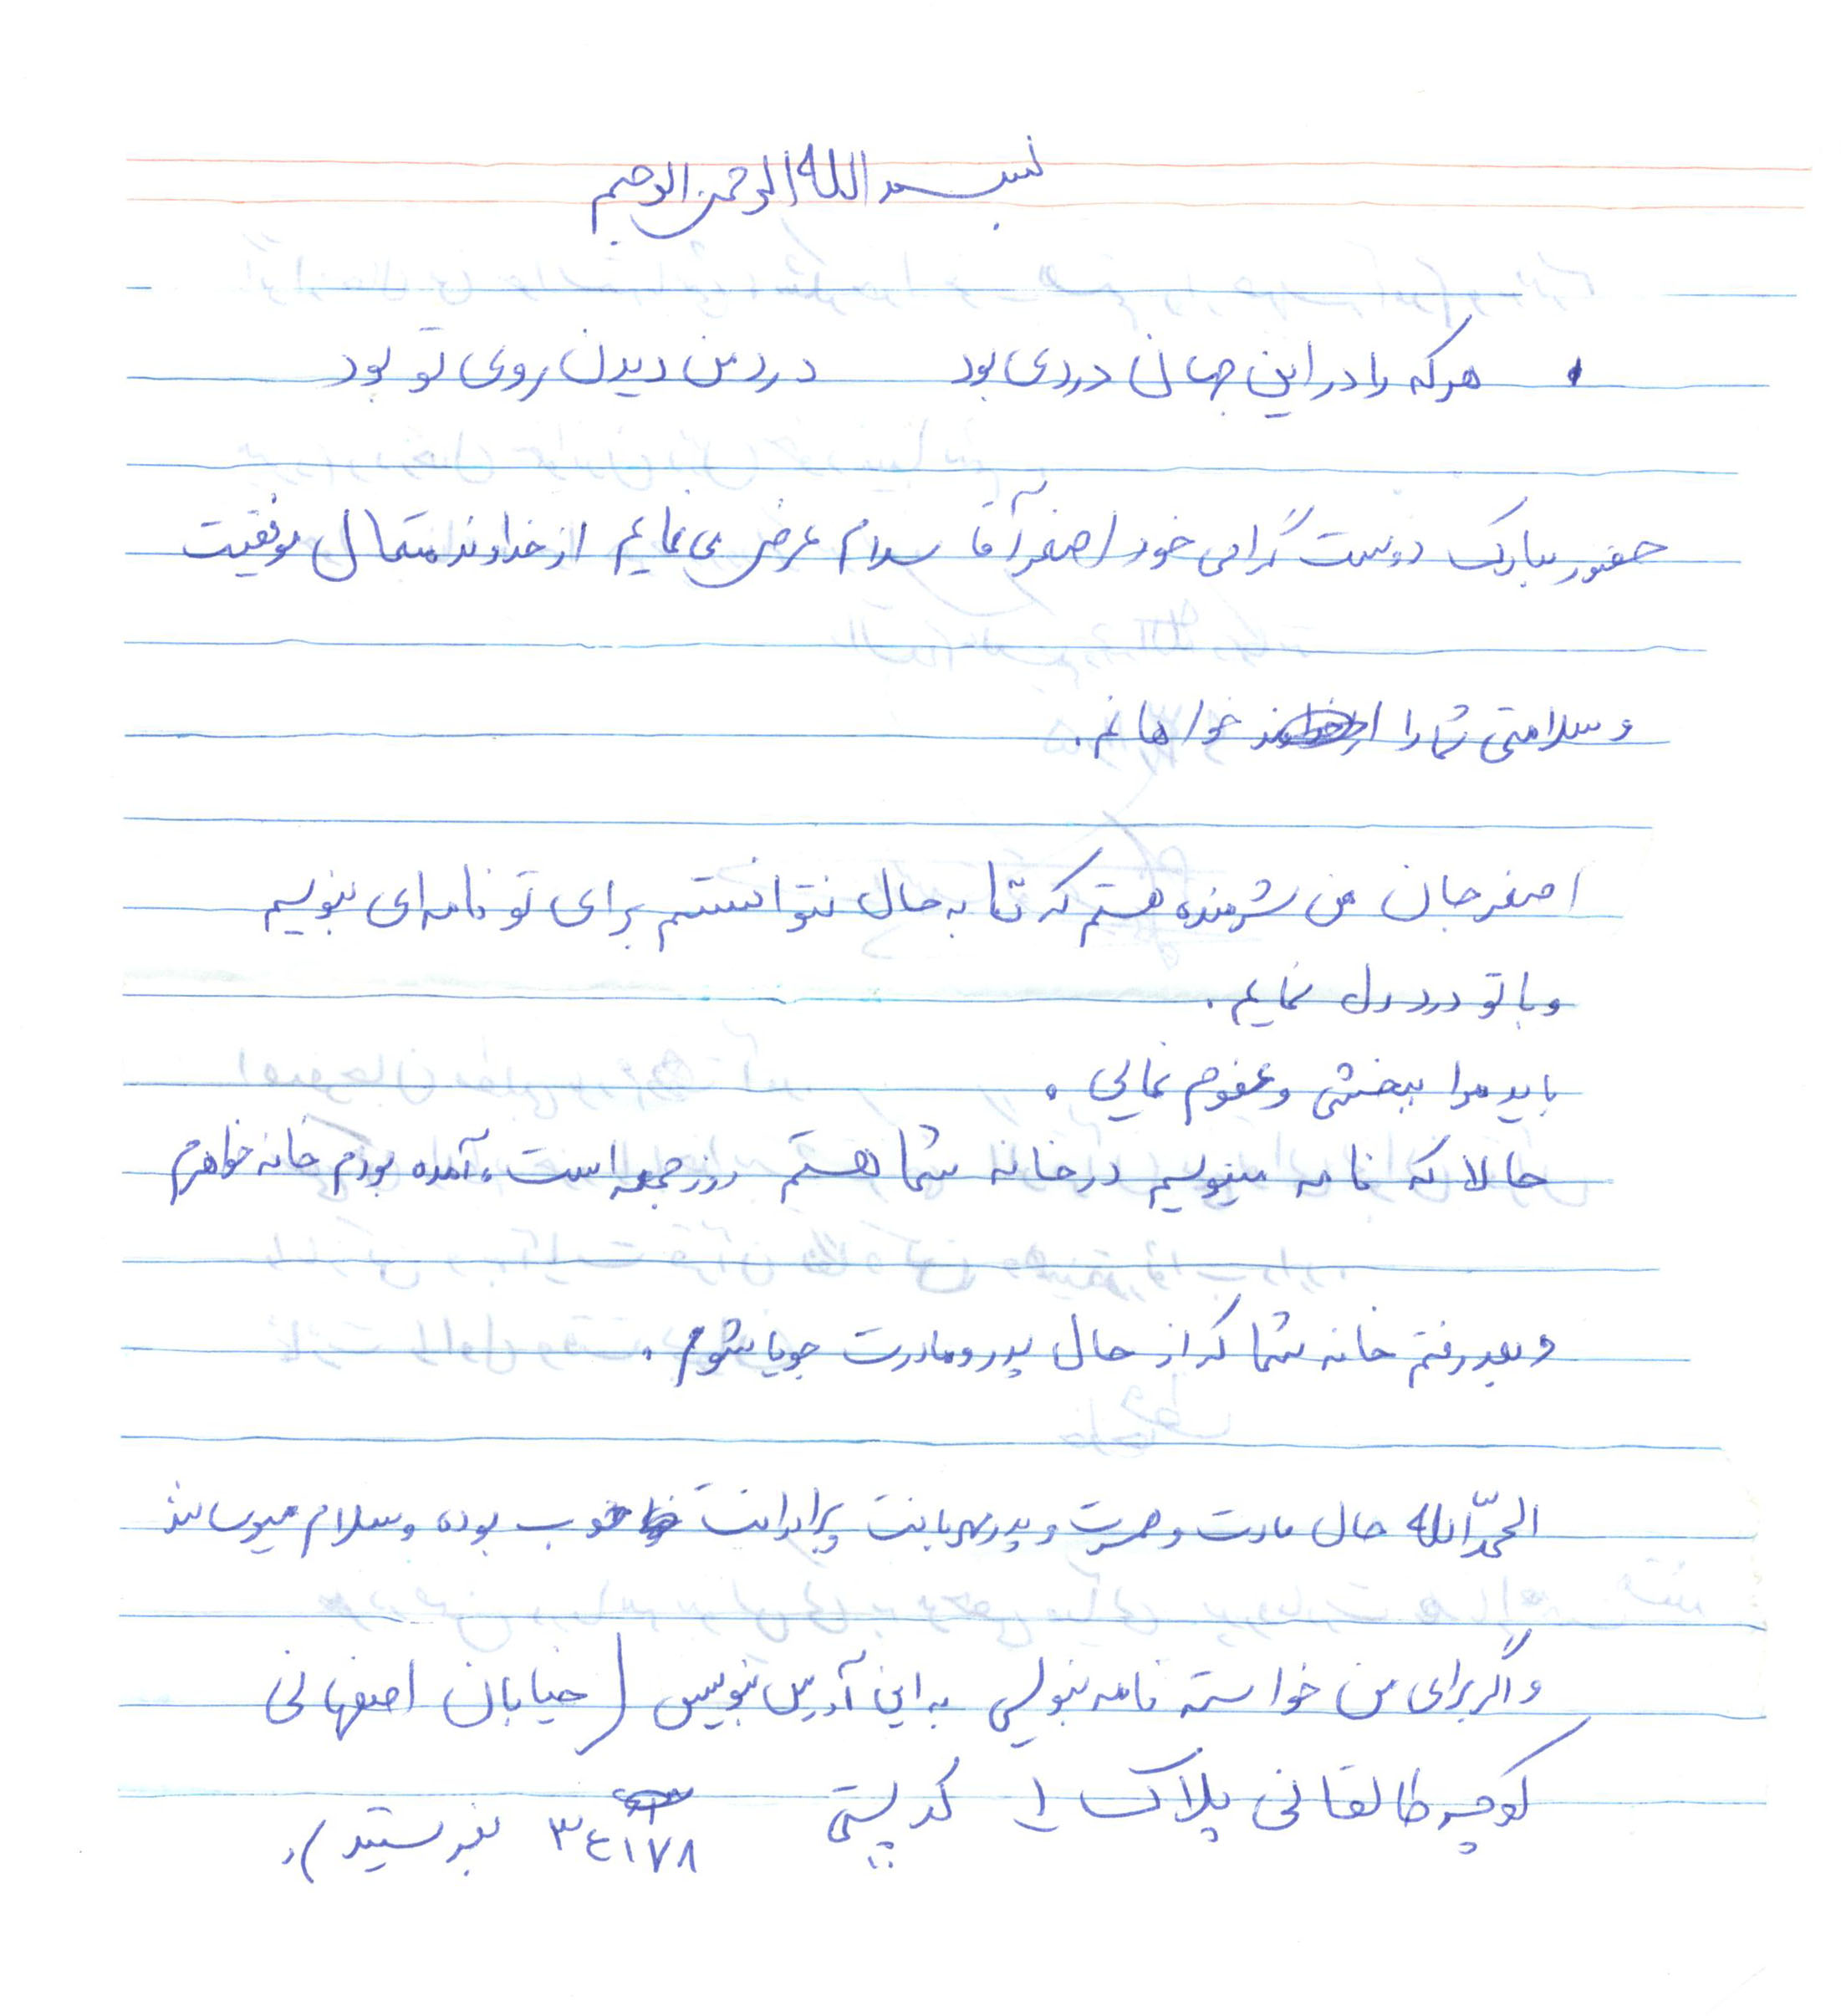 بسم الله الرحمن الرحیم
هرکه را در این جهان دردی بود درد من دیدن روی تو بود
حضور مبارک دوست گرامی خود اصغر آقا سلام عرض می نمایم از خداوند متعال موفقیت
و سلامتی شما را خواهانم.
اصغر جان من شرمنده هستم که تا به حال نتوانستم برای تو نامه ای بنویسم
و با تو درد دل نمایم.
باید مرا ببخشی و عفوم نمایی.
حالا که نامه مینویسم در خانه شما هستم روز جمعه است، آمده بودم خانه خواهرم
و بعد رفتم خانه شما که از حال پدر و مادرت جویا شوم.
الحمدالله حال مادرت و همسرت و پدر مهربانت برادرانت خوب بوده و سلام میرسانند
و اگر برای من خواسته نامه بنویسی به این آدرس بنویس (خیابان اصفهانی
کوچه طالقانی پلاک ۱ کد پستی
۳٤۱۷۸ بفرستید).